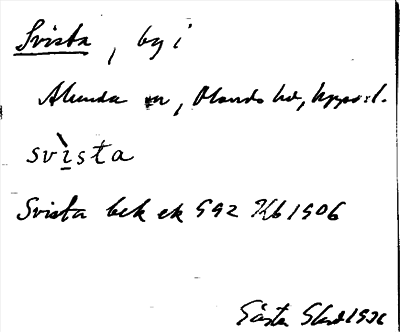 Svista, by i
Alunda sn, Olands hd, Upps. l.
svìsta
Svista bek ek 992 Kb 1906
Gösta